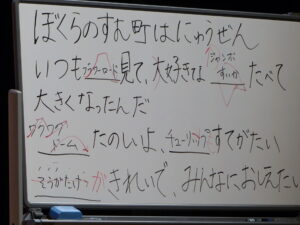 ぼくらのすむ町はにゅうぜん
いつもフラワーロード見て、大好きな ジャンボすいか たべて
大きくなったんだ
ワクワクドーム たのしいよ、チューリップすてがたい
そうがたけつがきれいで、みんなにおしえたい